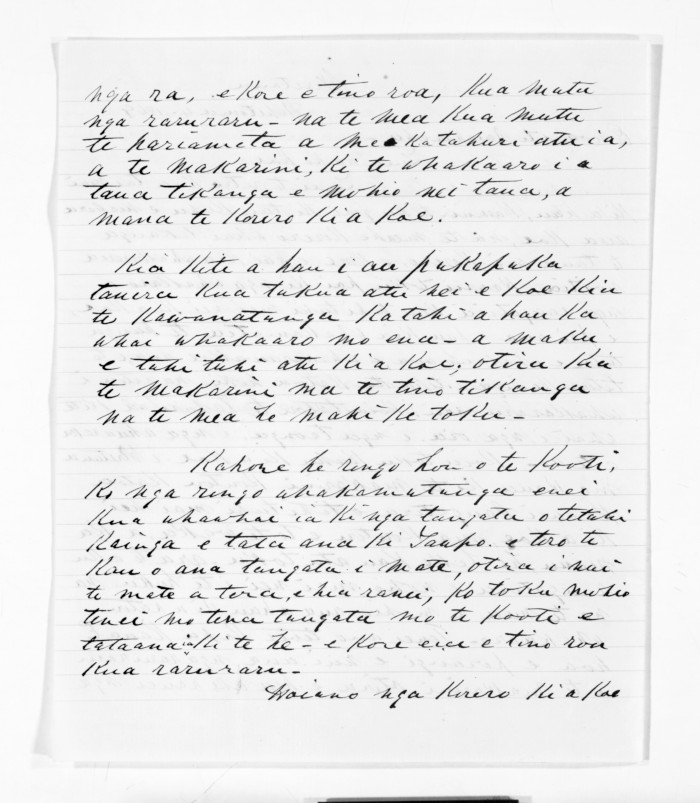 nga ra, e kore e tino roa, kua mutu
nga raruraru - na te mea kua mutu
te pariameta a me katahuri atu ia,
a te Makarini, ki te whakaaro i a
taua tikanga e mohio nei taua, a
mana te korero ki a koe.
Kia kite a hau i au pukapuka
tauira kua tukua atu nei e koe kia
te Kawanatanga katahi a hau ka
whai whakaaro mo ena - a maku
e tuhi tuhi atu ki a koe, otira kia
te Makarini ma te tino tikanga
na te mea he mahi ke toku -
Kahore he rongo hou o te Kooti,
Ko nga rongo whakamutunga enei
kua whawhai ia ki nga tangata o tetahi
kainga e tata ana ki Taupo. e toro te
kau o ana tangata i mate, otira i nui
te mate a tera, e hia ranei, ko toku mohio
tenei mo tena tangata mo te Kooti e
tataana ia ki te he - e kore eia e tino roa
kua raruraru -
Hoiano nga korero ki a koe